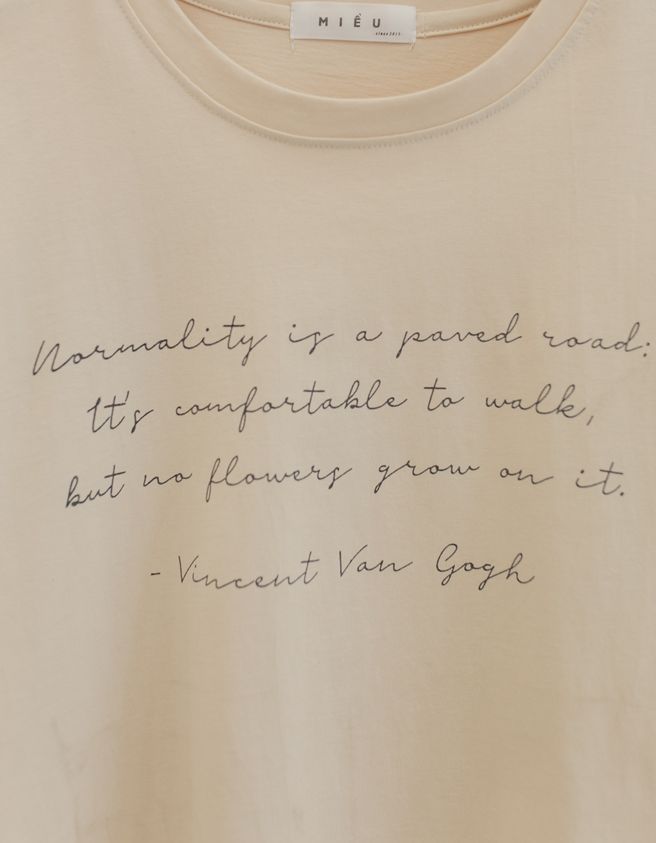 MIÊU
since 2017
Normality is a paved road:
It's comfortable to walk,
but no flowers grow on it.
- Vincent Van Gogh